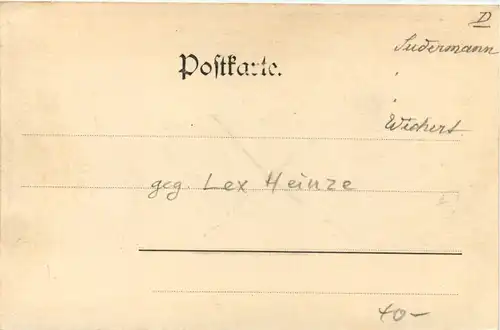 D
Sudermann
Postkarte.
Wichert
geg. Lex Heinze
40-